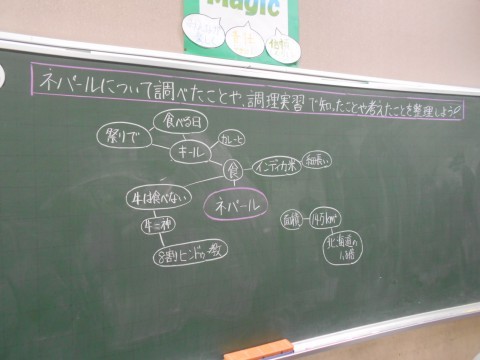 Magic
ネパールについて調べたことや、調理実習で知ったことや考えたことを整理しよう
食べる日
祭りで
キール
カレーと
食
インディカ米
細長い
牛は食べない
ネパール
牛=神
8割ヒンドゥー教
面積
14万km²
北海道の
1.8倍